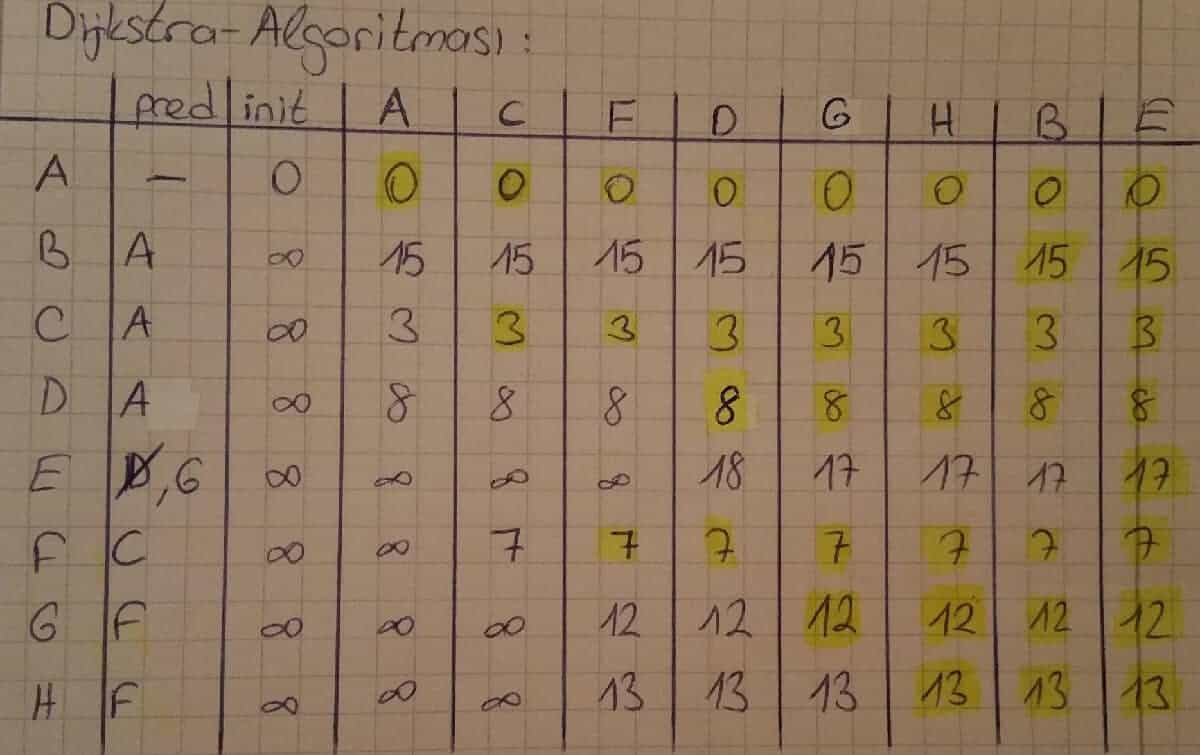 Dijkstra-Algoritması:
pred init A C F D G H B E
A — 0 0 0 0 0 0 0 0 0
B A ∞ 15 15 15 15 15 15 15 15
C A ∞ 3 3 3 3 3 3 3 3
D A ∞ 8 8 8 8 8 8 8 8
E D, G ∞ ∞ ∞ ∞ 18 17 17 17 17
F C ∞ ∞ 7 7 7 7 7 7 7
G F ∞ ∞ ∞ 12 12 12 12 12 12
H F ∞ ∞ ∞ 13 13 13 13 13 13